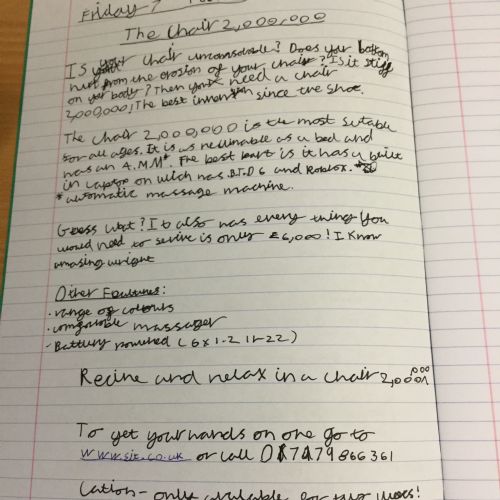 Friday 7
The Chair 2,000,000
IS your chair unconsolable? Does your bottom
hurt from the erosion of your chair? Is it stiff
on your body? Then you need a chair
2,000,000! The best invention since the shoe.
The Chair 2,000,000 is the most sutable
for all ages. It is as reclinable as a bed and
has an A.M.M*. The best part is it has a built
in laptop on wich has B.T.D 6 and Roblox.
*automatic massage machine.
Guess what? It also has every thing you
would need to servive is only £6,000! I know
amasing wright
Other Features:
• range of colours
• massager
- Battery powered (6x1-2 1r22)
Recine and relax in a chair 2,000,000
To get your hands on one go to
www.sit.co.uk or call 017479866361
Cation- only available for two